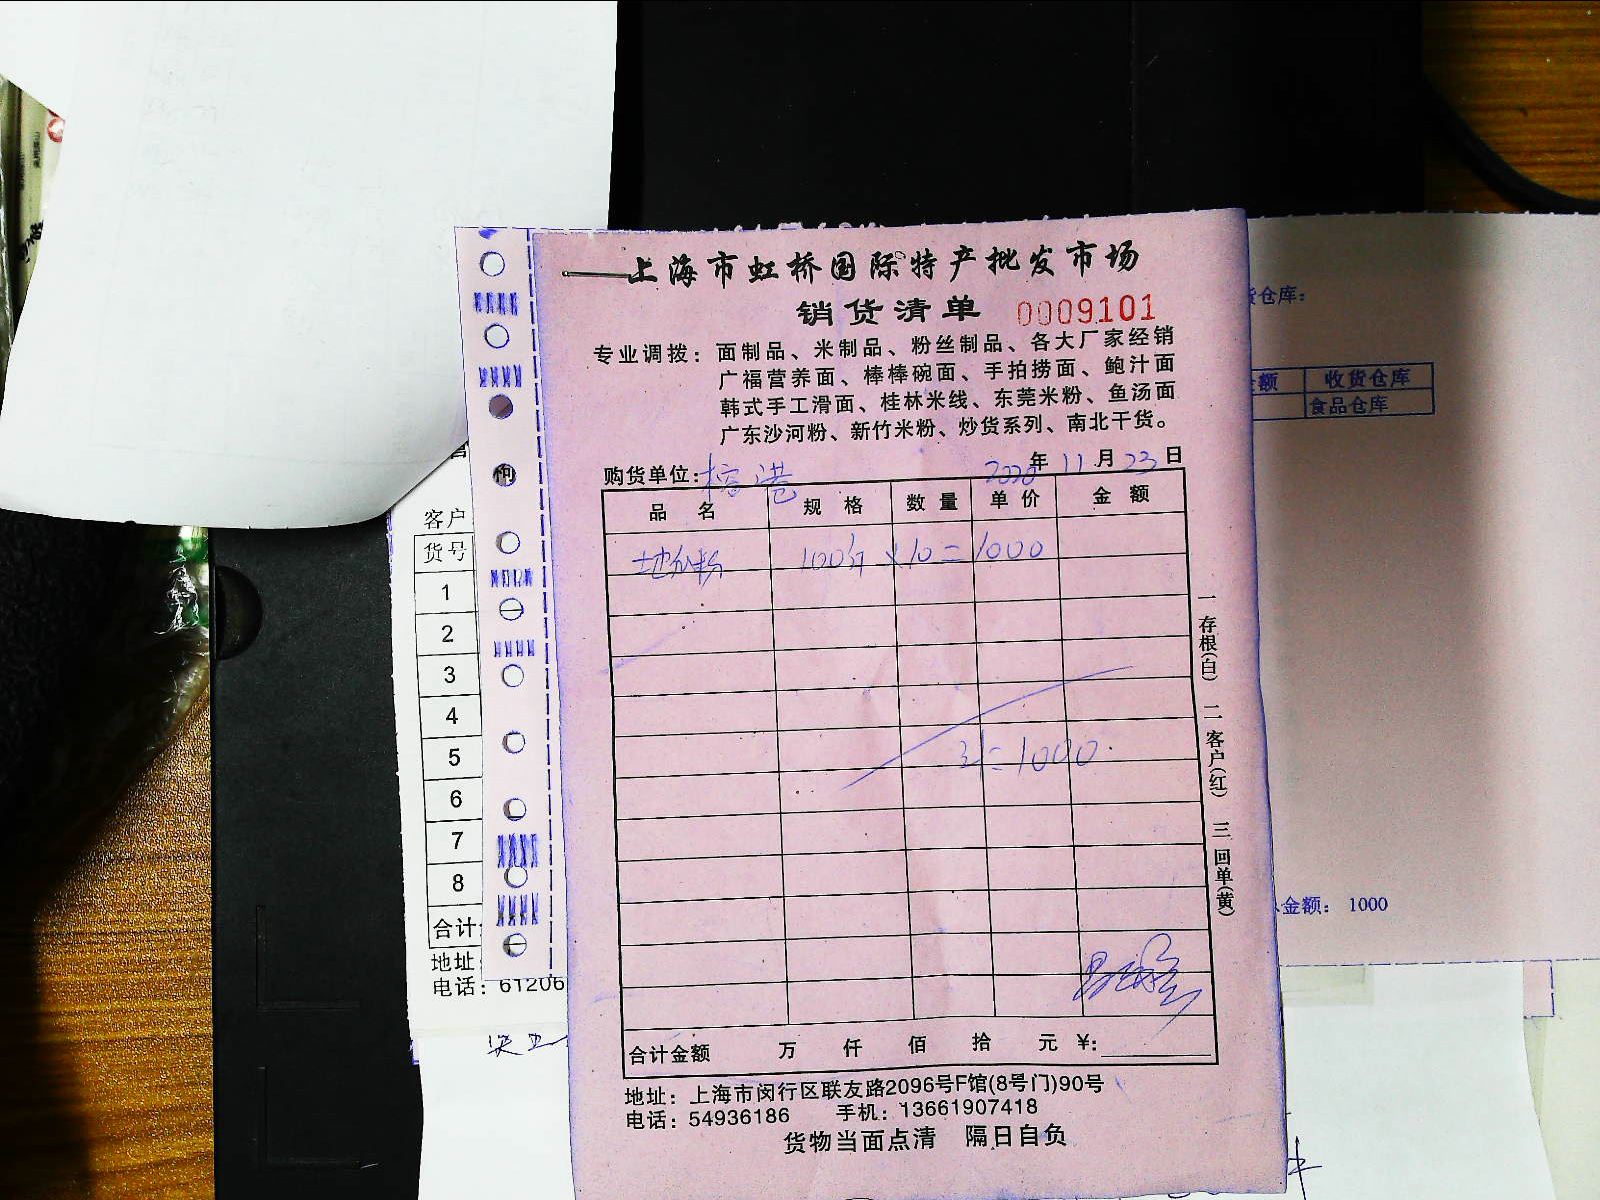 上海市虹桥国际特产批发市场
销货清单 0009101
专业调拨：面制品、米制品、粉丝制品、各大厂家经销
广福营养面、棒棒碗面、手拍捞面、鲍汁面
韩式手工滑面、桂林米线、东莞米粉、鱼汤面
广东沙河粉、新竹米粉、炒货系列、南北干货。
购货单位: 2020年 11月 23日
品 名 规 格 数 量 单 价 金 额
100斤 × 10 = 1000
= 1000
合计金额 万 仟 佰 拾 元 ¥:
地址：上海市闵行区联友路2096号F馆(8号门)90号
电话：54936186 手机：13661907418
货物当面点清 隔日自负
一存根(白) 二客户(红) 三回单(黄)
客户
货号
1
2
3
4
5
6
7
8
合计
地址
电话：61206
仓库：
额 收货仓库
食品仓库
金额： 1000